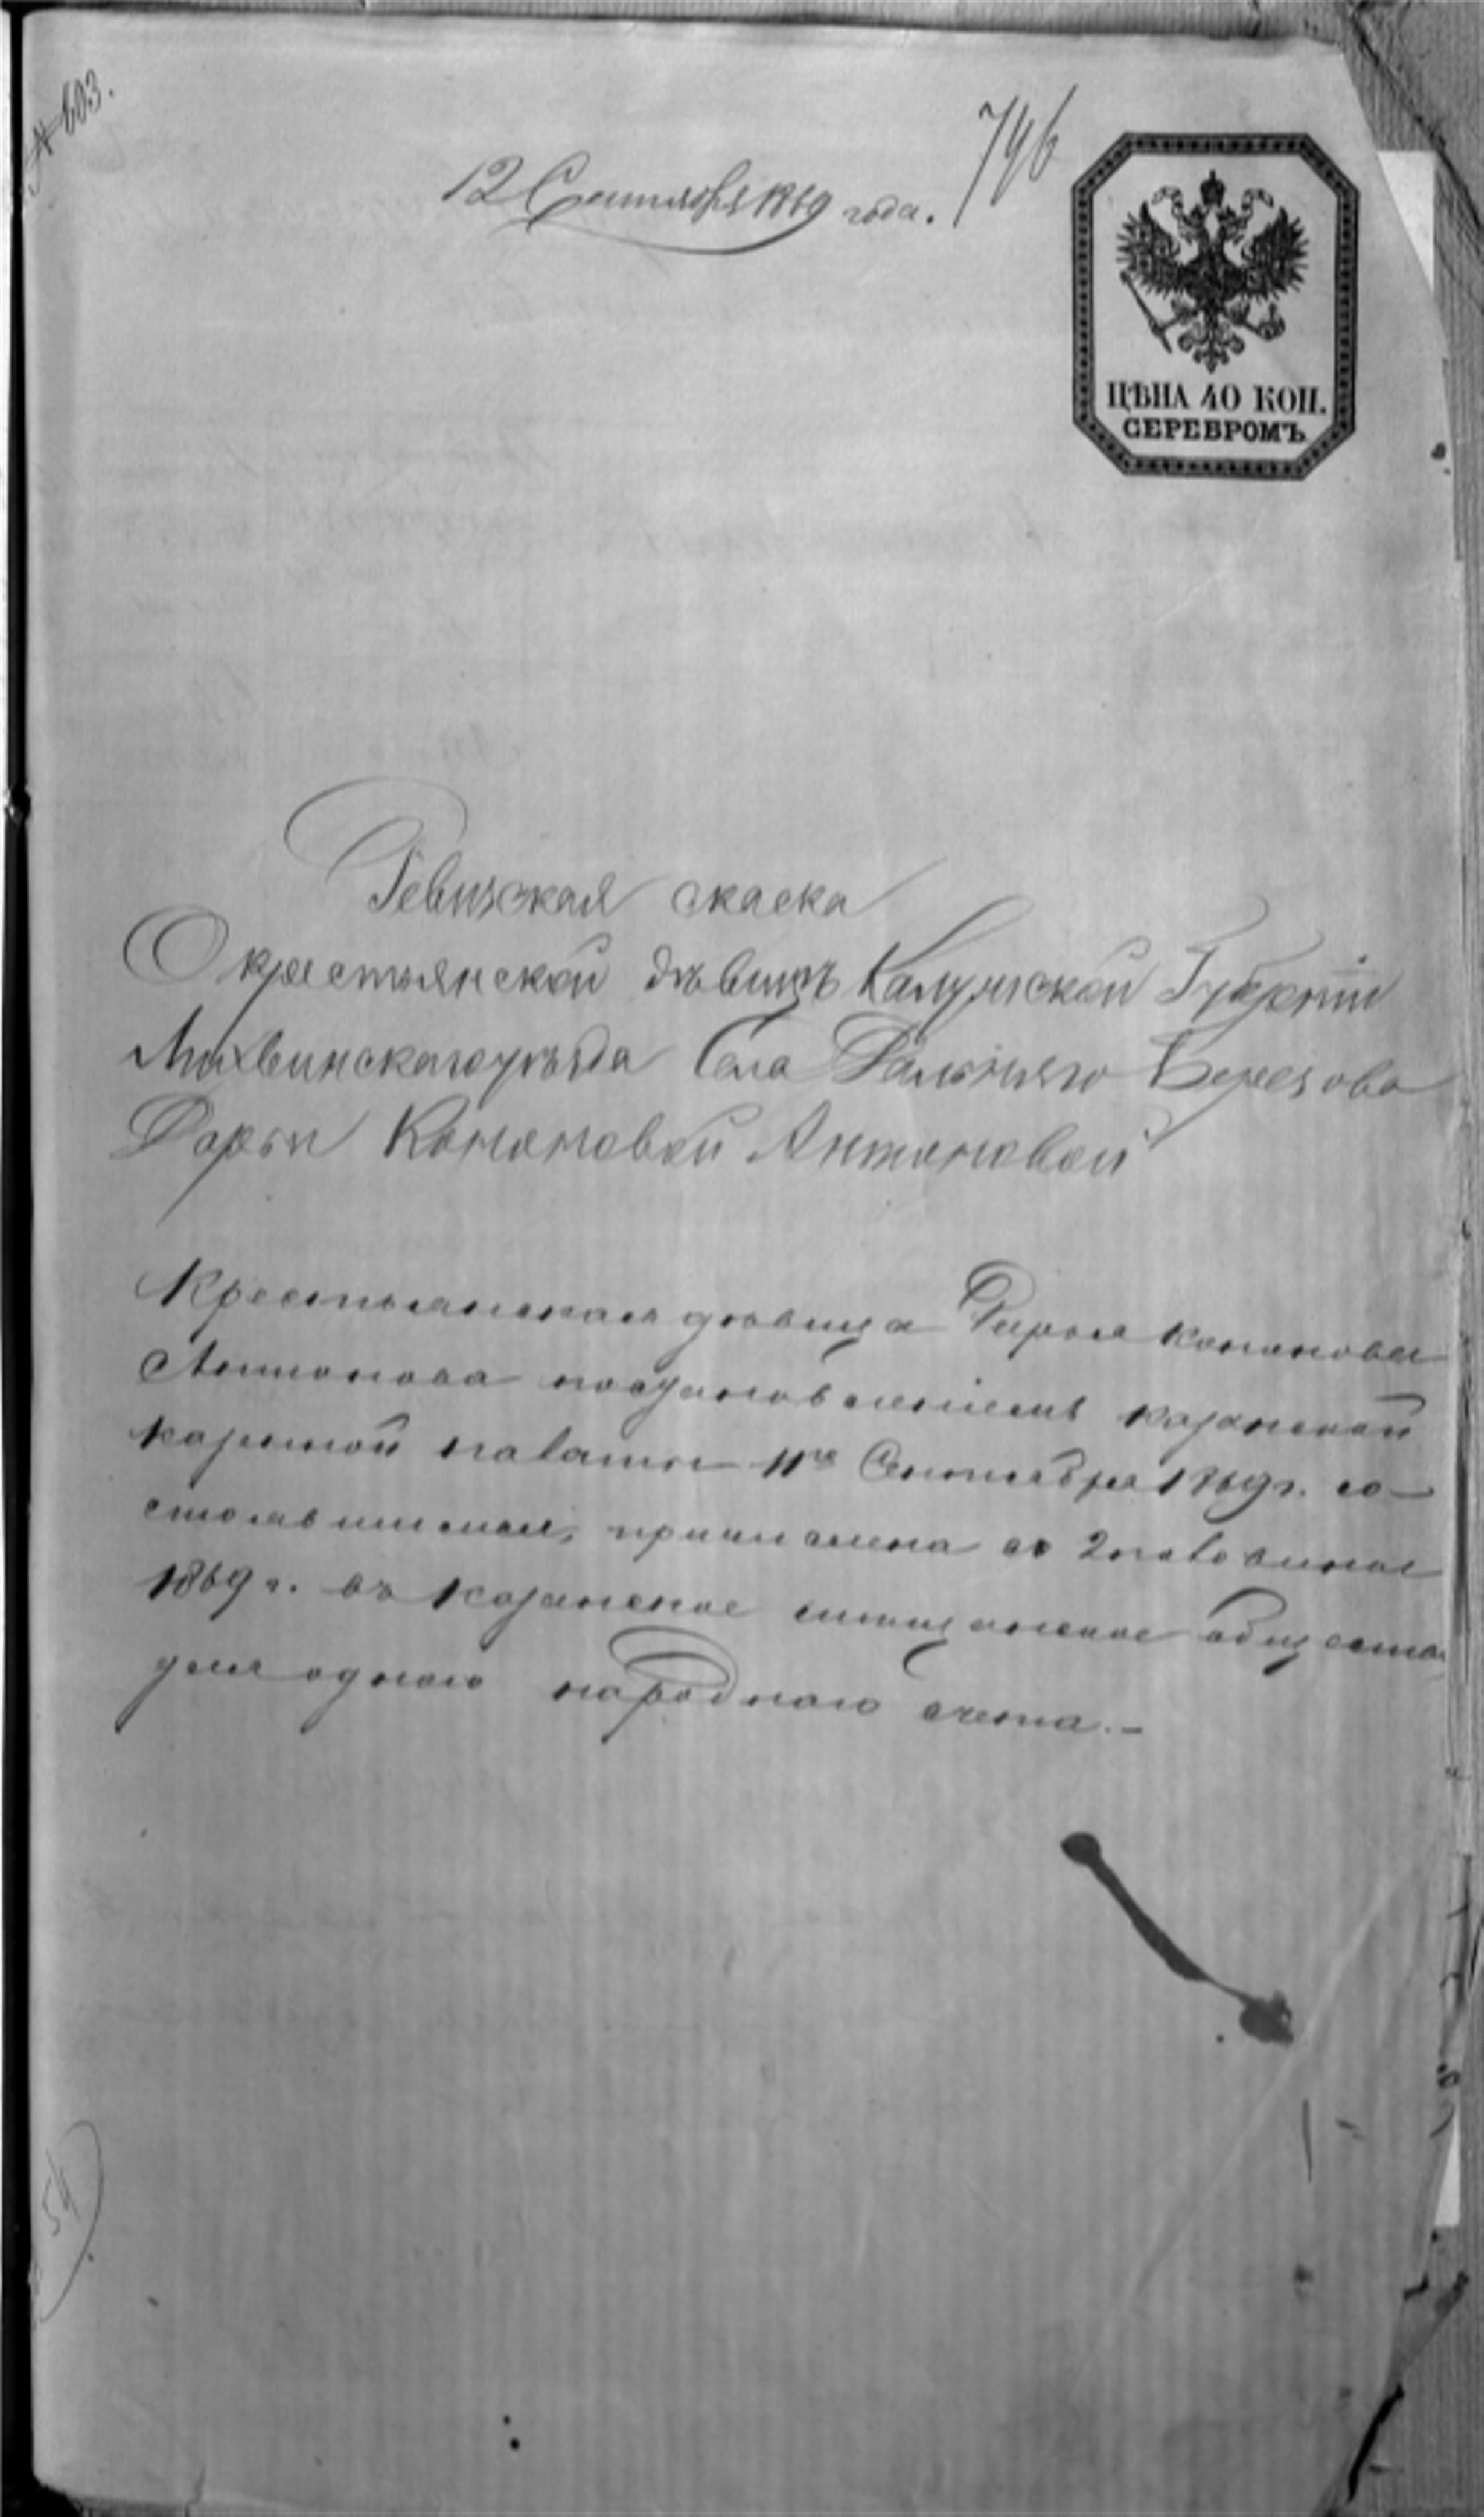 № 603.
796
12 Сентября 1869 года.
ЦѢНА 40 КОП.
СЕРЕБРОМЪ
Ревизская скаска
О крестьянской дѣвицѣ Калужской Губерніи
Лихвинскаго уѣзда Села Дальняго Березова
Дарьи Кононовой Антоновой
Крестьянская дѣвица Дарья Кононова
Антонова постановленіемъ казанской
казенной палаты 11го Сентября 1869 г. со-
стоявшимся, причислена со 2 половины
1869 г. въ казанское мѣщанское общество
для одного народнаго счета. –
54